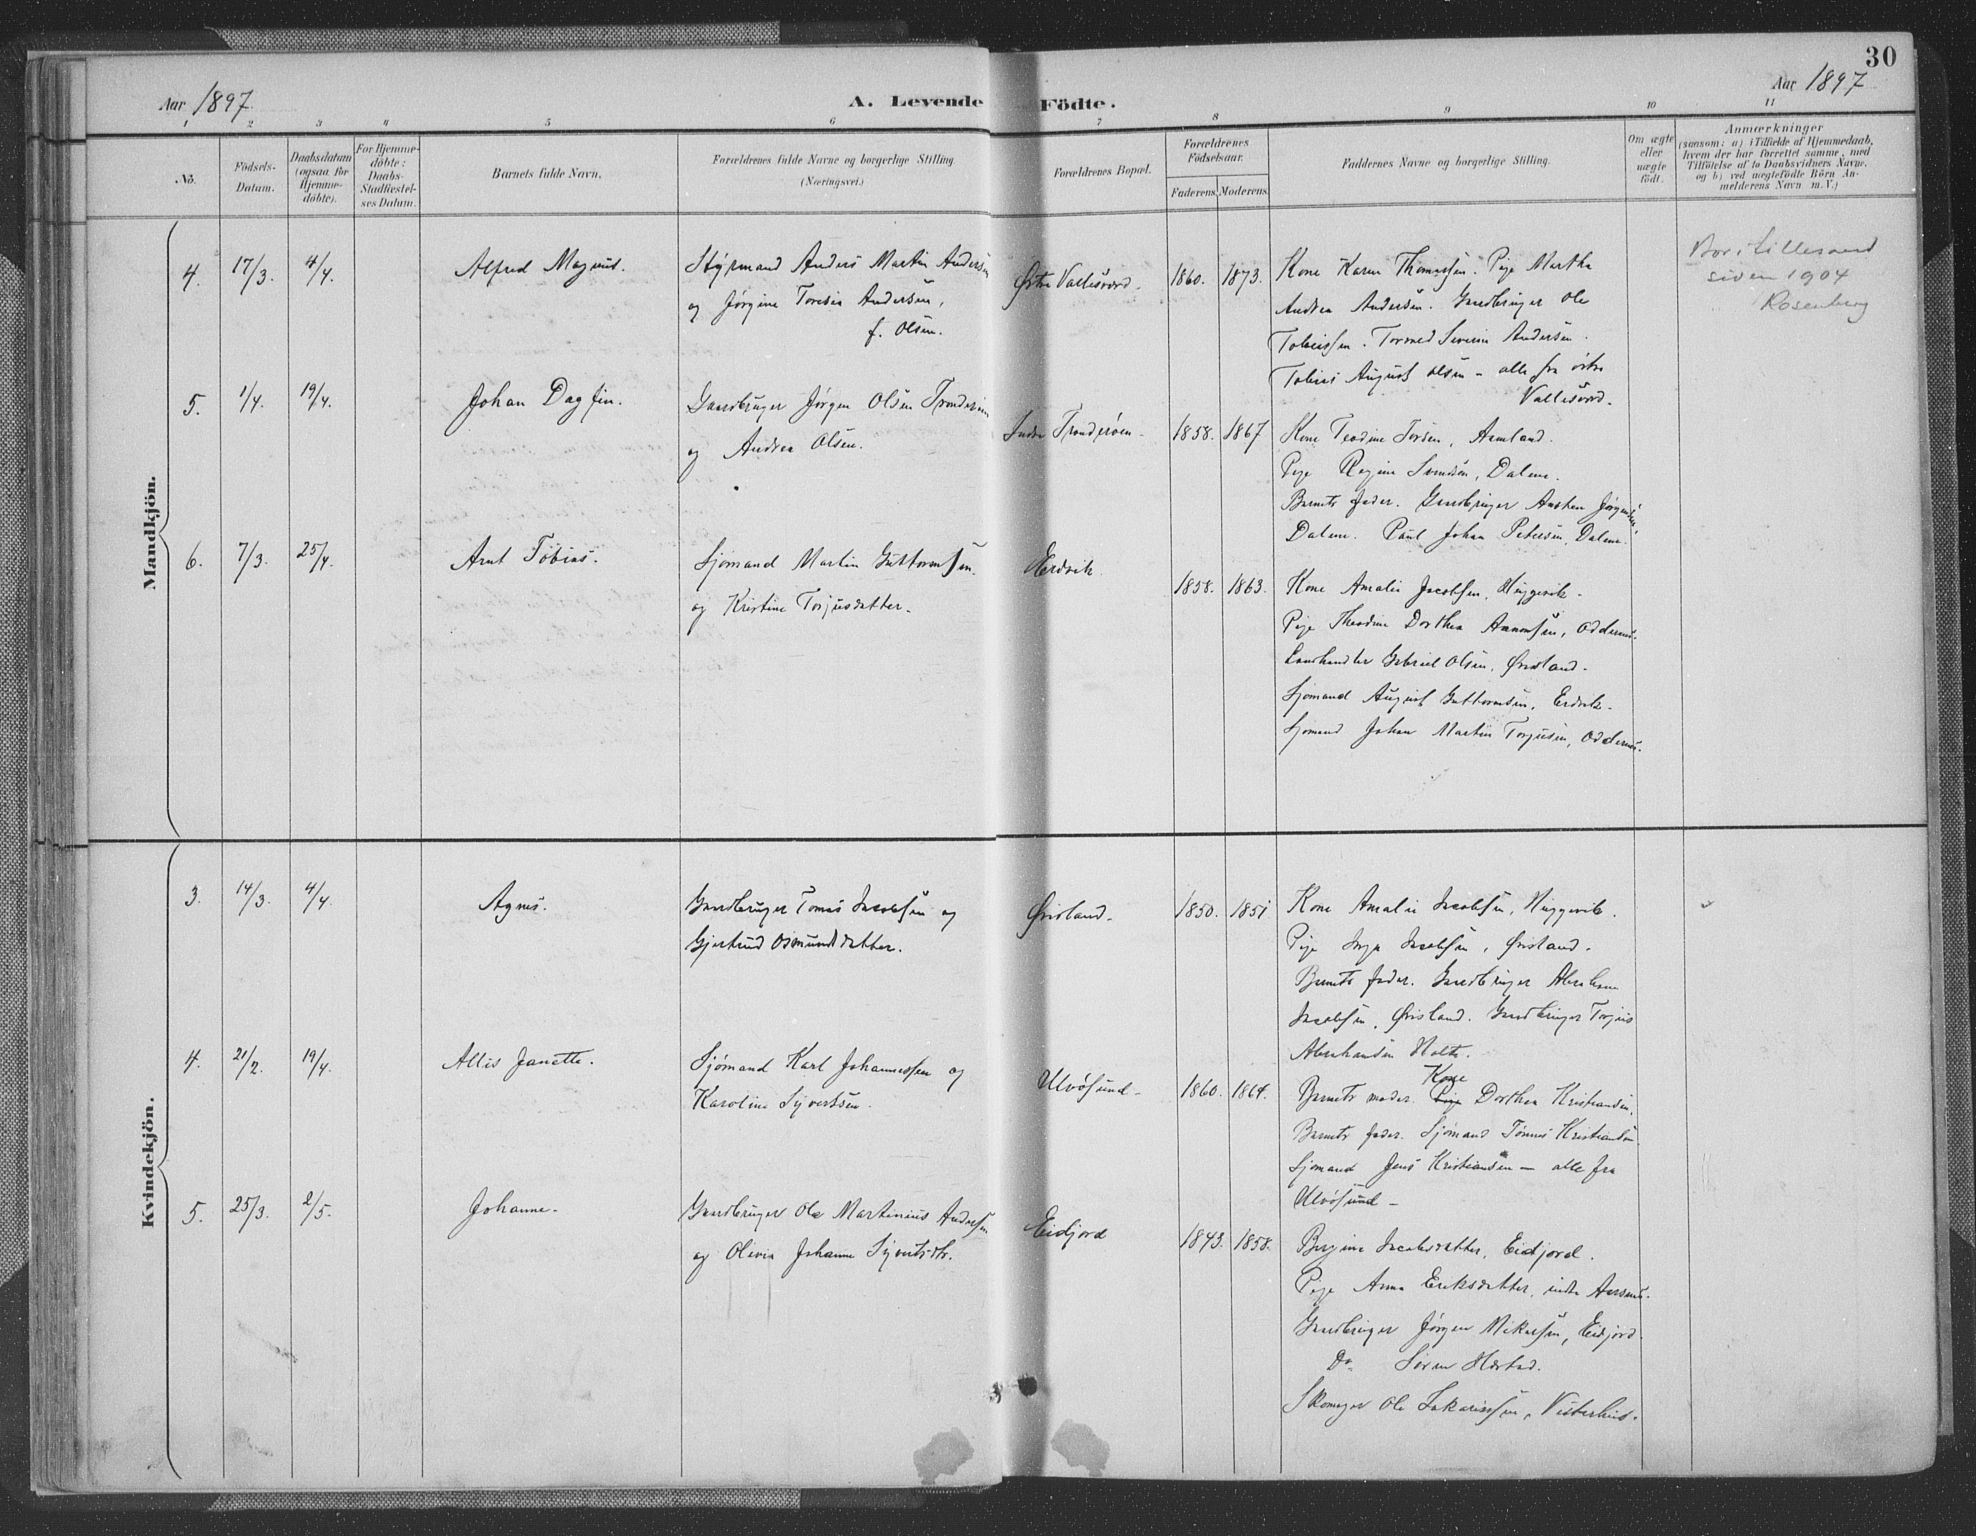 30
Aar 1897.
A. Levende Födte.
Aar 1897
1 2 3 4 5 6 7 8 9 10 11
No.
Födsels-Datum.
Daabsdatum (ogsaa for Hjemme-döbte).
For Hjemme-döbte: Daabs-Stadfæstel-ses Datum.
Barnets fulde Navn.
Forældrenes fulde Navne og borgerlige Stilling
(Næringsvei.)
Forældrenes Bopæl.
Forældrenes Födselsaar.
Faderens. Moderens.
Faddernes Navne og borgerlige Stilling.
Om ægte eller uægte födt.
Anmærkninger
(saasom: a) i Tilfælde af Hjemmedaab,
hvem der har forrettet samme, med
Tilföielse af to Daabsvidners Navne.
og b) ved uægtefödte Börn An-
melderens Navn m. V.)
Mandkjön.
4. 17/3. 4/4. Alfred Magnus.
Styrmand Anders Martin Andersen
og Jørgine Toresia Andersen,
f. Olsen.
Østre Vallesverd. 1860. 1873.
Kone Karen Thomassen. Pige Martha
Andrea Andersen. Gaardbruger Ole
Tobiassen. Tormod Severin Andersen.
Tobias August Olsen - alle fra östre
Vallesverd.
Bor i Lillesand
siden 1904
Rosenberg
5. 1/4. 19/4. Johan Dagfin.
Gaardbruger Jørgen Olsen
og Andrea Olsen.
Indre 1858. 1867
Kone Teodine
Pige Regine Svendsen, Dalene.
Barnets fader. Gaardbruger Austen Jørgensen,
Dalene. Paul Johan Petersen, Dalene.
6. 7/3. 25/4. Arnt Tobias.
Sjømand Martin Guttormsen
og Kristine Torjusdatter.
Erdvik. 1858. 1863.
Kone Amalie Jacobsen, Hæggevik.
Pige Theodine Dorthea Aanonsen, Oddernes.
Landhandler Gabriel Olsen, Øvsland.
Sjømand August Guttormsen, Erdvik.
Sjømand Johan Martin Torjusen, Oddernes.
Kvindekjön.
3. 14/3. 4/4. Agnes.
Gaardbruger Tomas Jacobsen og
Gjertrud Osmundsdatter.
Øvsland. 1850. 1851
Kone Amalie Jacobsen, Hæggevik.
Pige Inga Jacobsen, Øvsland.
Barnets fader. Gaardbruger Abraham
Jacobsen, Øvsland. Gaardbruger Torjus
Abrahamsen Holte.
4. 21/2. 19/4. Allis Janette.
Sjømand Karl Johannessen og
Karoline Syvertsen.
Ulvøsund. 1860. 1864.
Kone
Barnets moder. Pige Dorthea Kristiansen.
Barnets fader. Sjømand Tønnes Kristiansen
Sjømand Jens Kristiansen - alle fra
Ulvøsund -
5. 25/3. 2/5. Johanne.
Gaardbruger Ole Martinius Andersen
og Olivia Johanne Syvertsdtr.
Eidjord 1843. 1858.
Bergine Jacobsdatter, Eidjord.
Pige Anna Eriksdatter, indre Aarsnes.
Gaardbruger Jørgen Mikalsen, Eidjord
Do. Søren
Skomager Ole Zakariassen, Vesterhus.